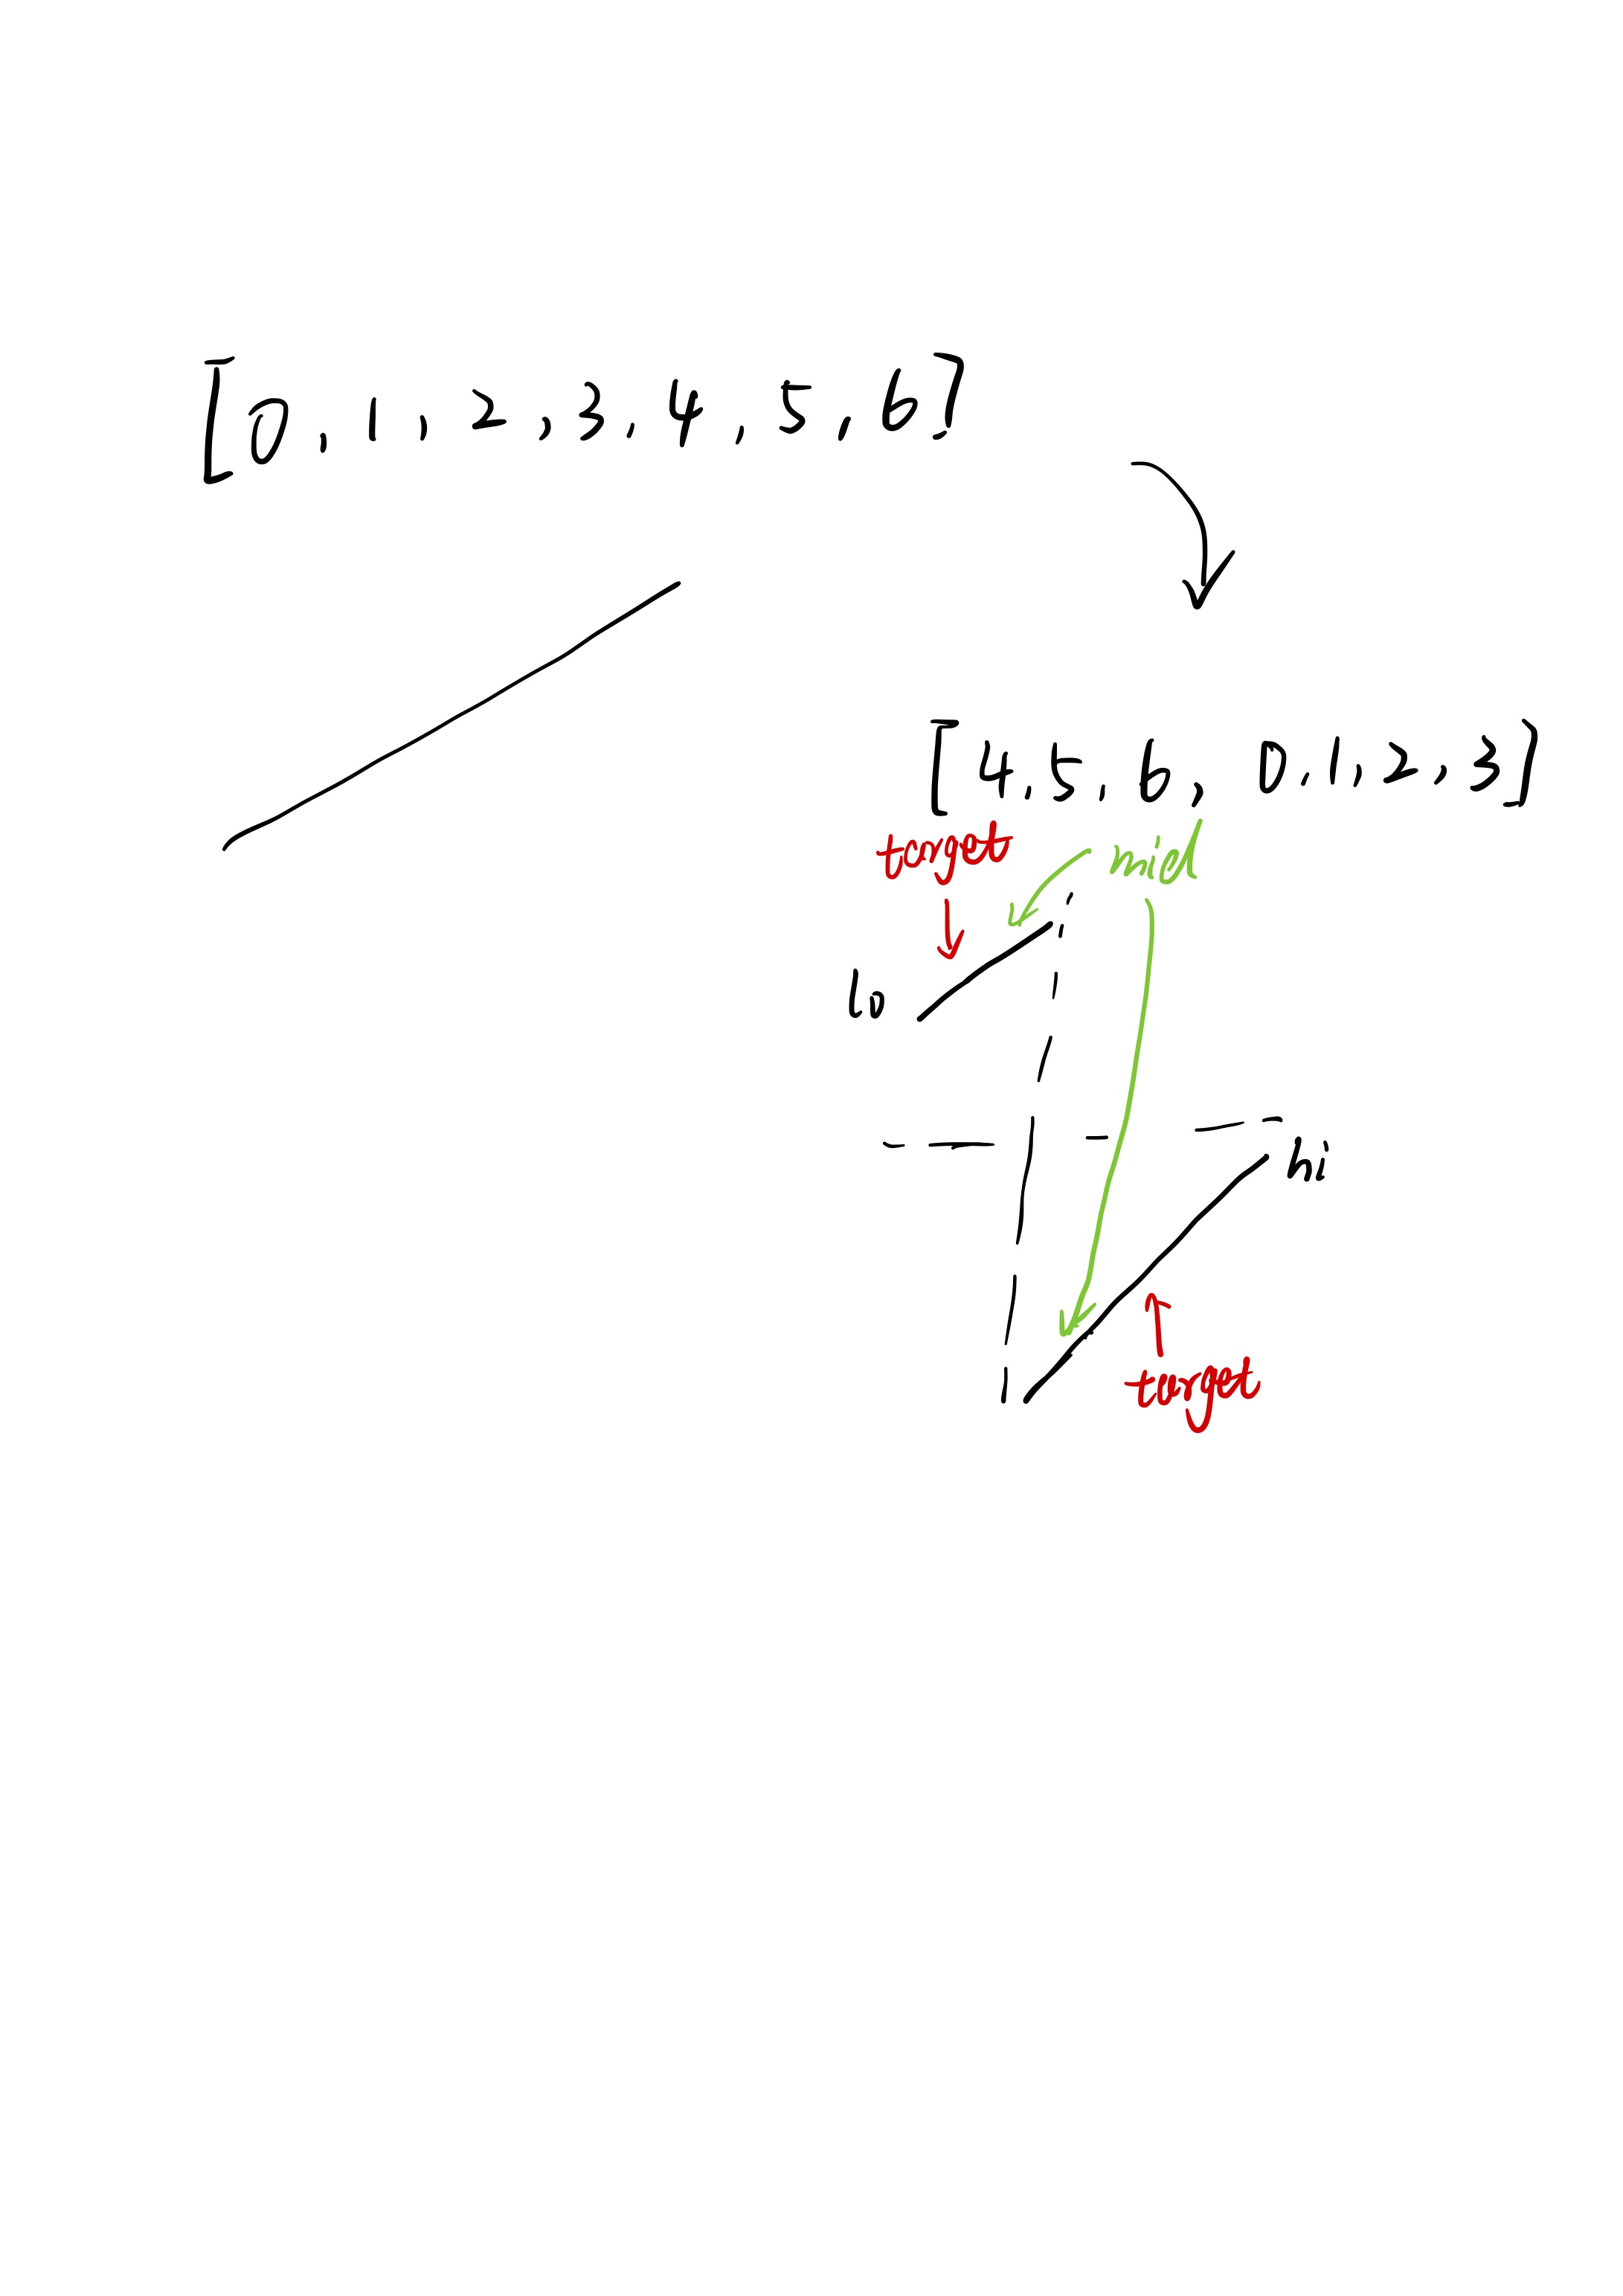 [0, 1, 2, 3, 4, 5, 6]
[4, 5, 6, 0, 1, 2, 3]
target
mid
lo
hi
target